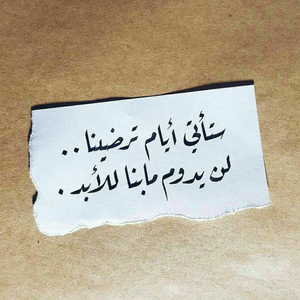 ستأتي أيام ترضينا..
لن يدوم مابنا للأبد.